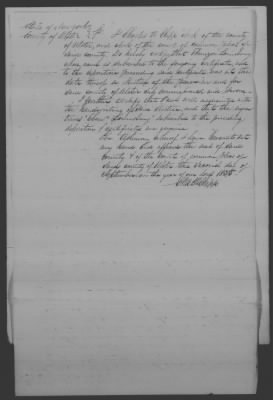 State of New York
County of Ulster SS. I Charles W. Chipp clerk of the county
of Ulster, and clerk of the court of common pleas of
said county do hereby certify that
whose name is subscribed to the foregoing certificate
to the deposition preceding said certificate was at the
date thereof a Justice of the peace in and for
said county of Ulster duly commissioned and sworn.
I further certify that I am well acquainted with
the handwriting of said and that the
signature subscribed to the preceding
deposition & certificate are genuine.
In testimony whereof I have hereunto set
my hand and affixed the seal of said
County & of the court of common pleas of
said county of Ulster this second day of
September in the year of our Lord 1835
Chipp